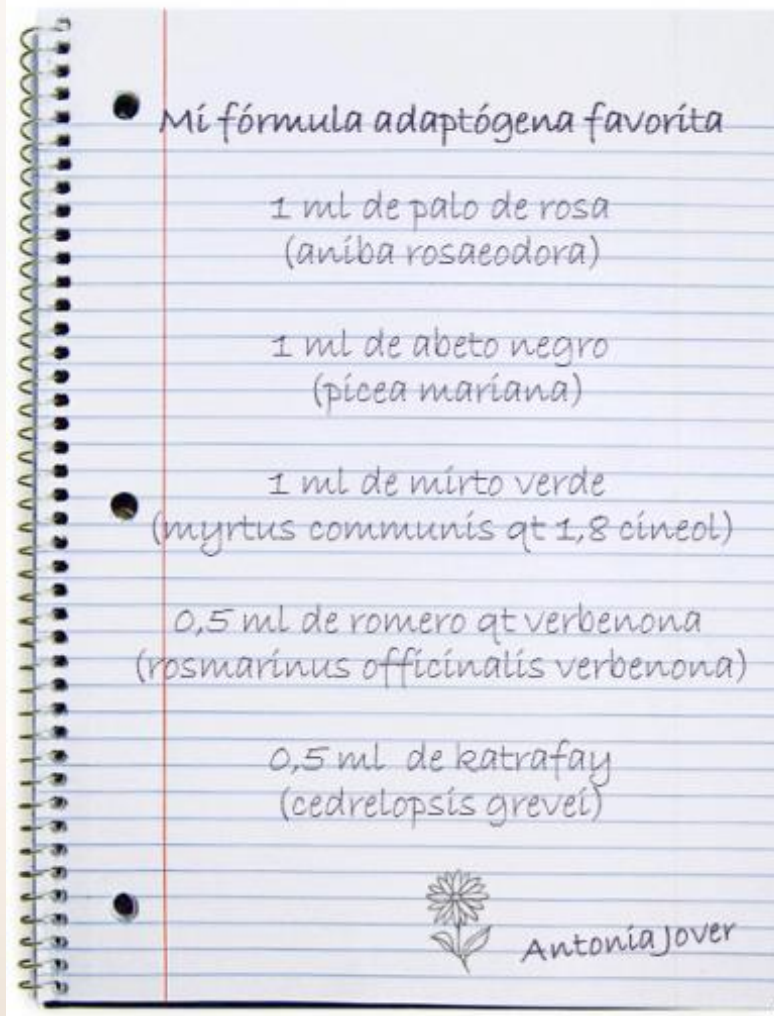 Mi fórmula adaptógena favorita
1 ml de palo de rosa
(aniba rosaeodora)
1 ml de abeto negro
(picea mariana)
1 ml de mirto verde
(myrtus communis qt 1,8 cineol)
0,5 ml de romero qt verbenona
(rosmarinus officinalis verbenona)
0,5 ml de katrafay
(cedrelopsis grevei)
Antonia Jover